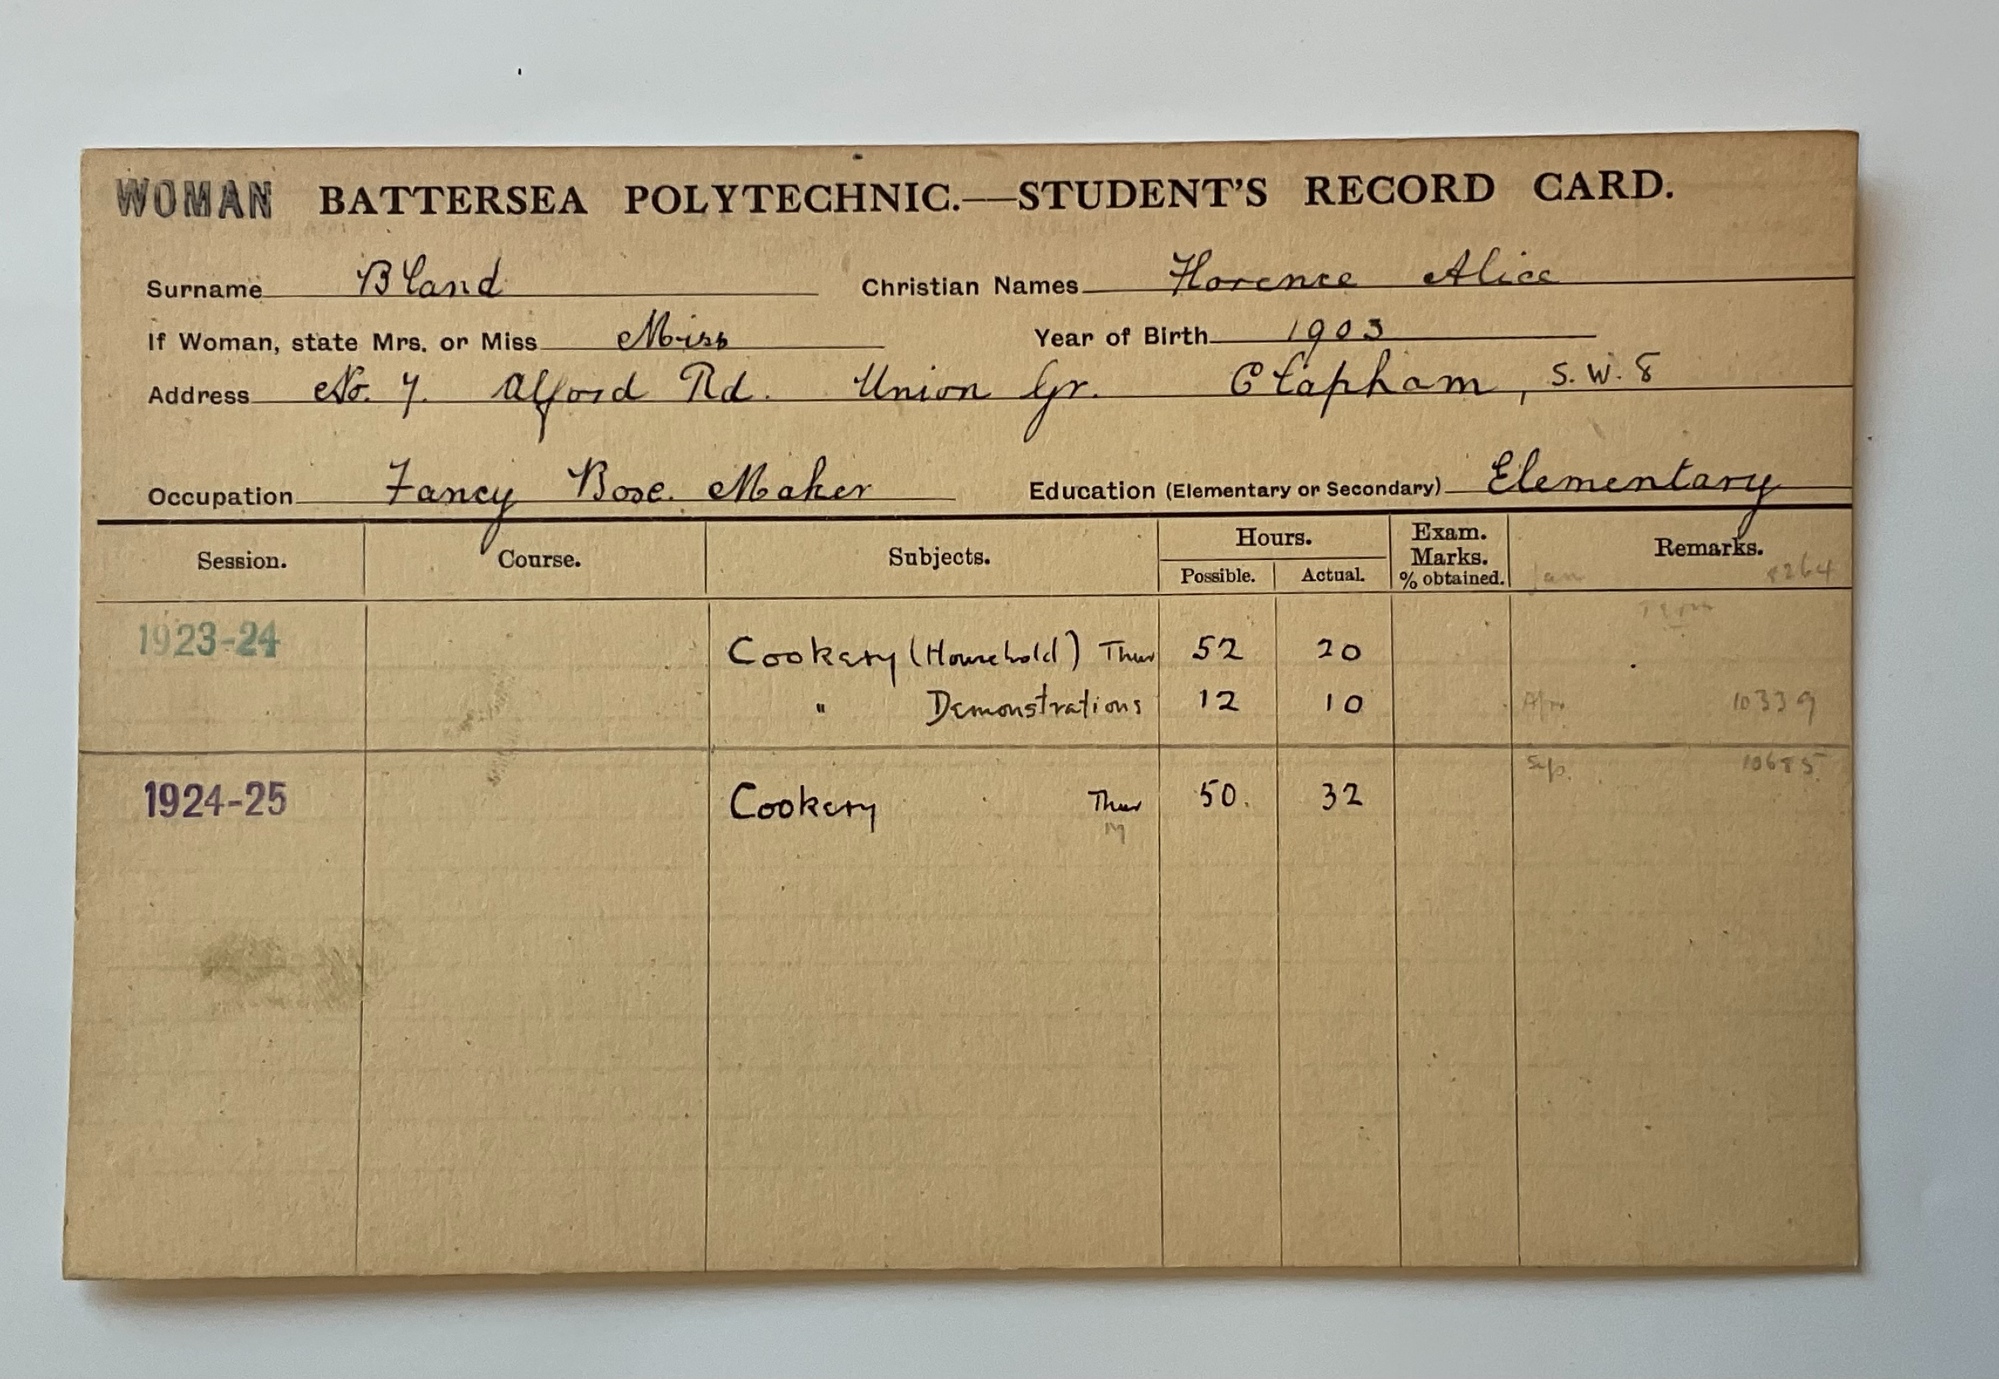 WOMAN BATTERSEA POLYTECHNIC.—STUDENT'S RECORD CARD.
Surname Bland Christian Names Florence Alice
If Woman, state Mrs. or Miss Miss Year of Birth 1903
Address No. 7. Alford Rd. Union Gr. Clapham, S.W. 8
Occupation Fancy Box Maker Education (Elementary or Secondary) Elementary
Session. Course. Subjects. Hours. Possible. Actual. Exam. Marks. % obtained. Remarks.
Jan
1923-24 Cookery (Household) Thur 52 20
" Demonstrations 12 10 10339
Sep. 10685
1924-25 Cookery Thur 50. 32